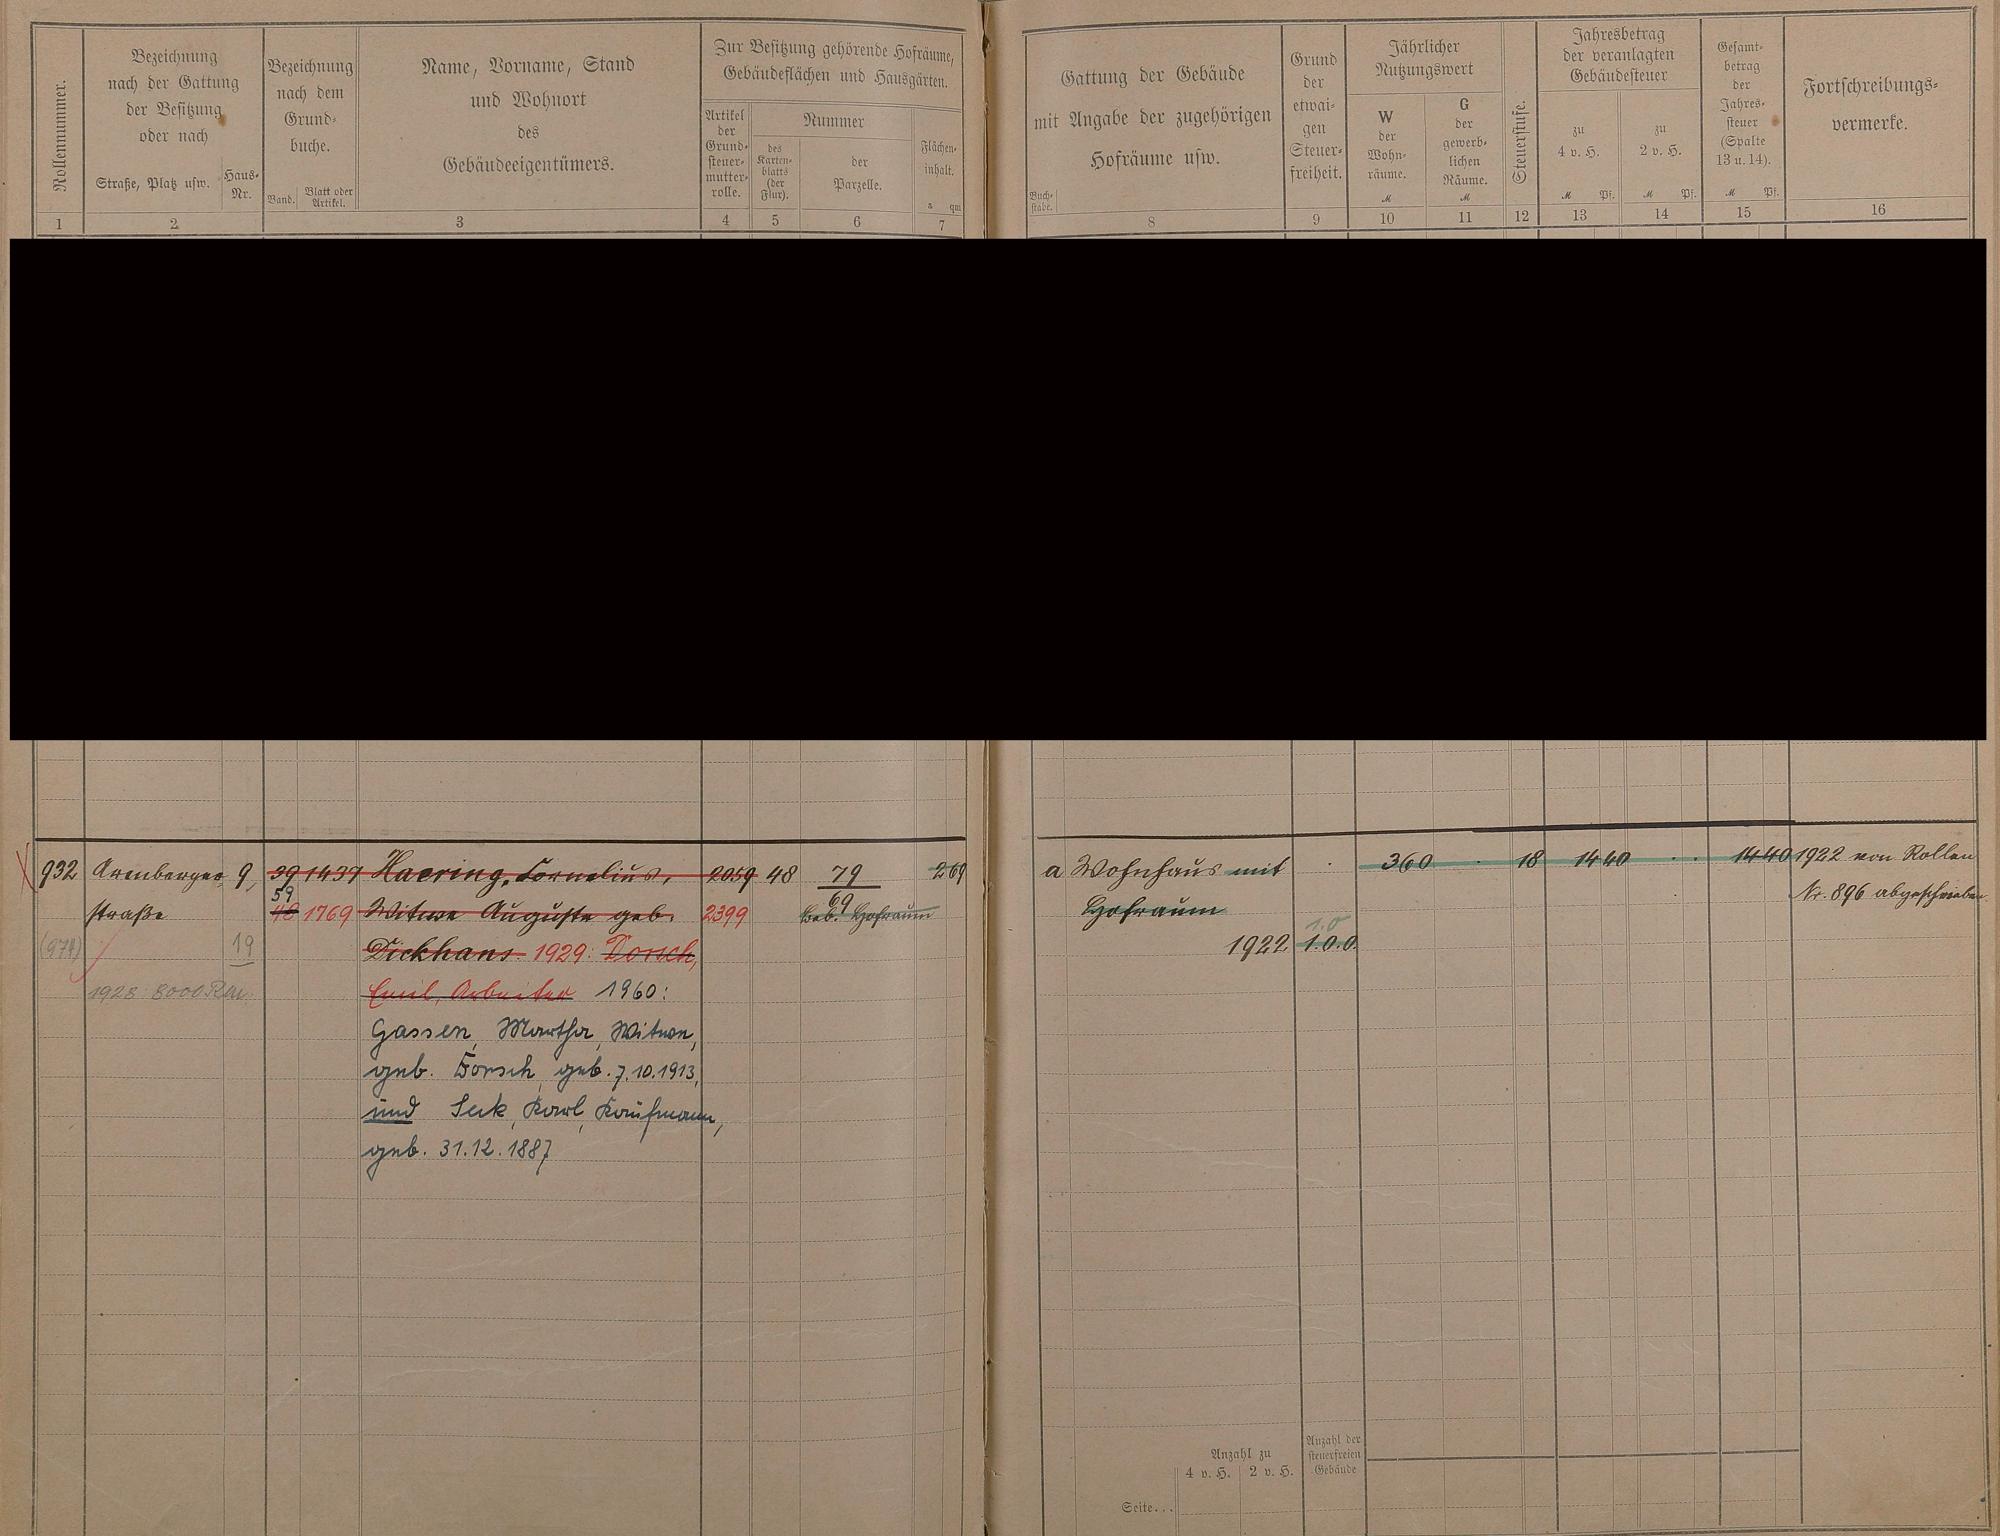 Rollennummer.
Bezeichnung
nach der Gattung
der Besitzung
oder nach
Straße, Platz usw.
Haus-
Nr.
Bezeichnung
nach dem
Grund-
buche.
Band.
Blatt oder
Artikel.
Name, Vorname, Stand
und Wohnort
des
Gebäudeeigentümers.
Zur Besitzung gehörende Hofräume,
Gebäudeflächen und Hausgärten.
Artikel
der
Grund-
steuer-
mutter-
rolle.
Nummer
des
Karten-
blatts
(der
Flur).
der
Parzelle.
Flächen-
inhalt.
a qm
1 2 3 4 5 6 7
Gattung der Gebäude
mit Angabe der zugehörigen
Hofräume usw.
Buch-
stabe.
Grund
der
etwai-
gen
Steuer-
freiheit.
Jährlicher
Nutzungswert
W
der
Wohn-
räume.
M
G
der
gewerb-
lichen
Räume.
M
Steuerstufe.
Jahresbetrag
der veranlagten
Gebäudesteuer
zu
4 v. H.
M Pf.
zu
2 v. H.
M Pf.
Gesamt-
betrag
der
Jahres-
steuer
(Spalte
13 u. 14).
M Pf.
Fortschreibungs-
vermerke.
8 9 10 11 12 13 14 15 16
932 Arenberger 9, 39 1437 Haering, Cornelius, 2059 48 79 269
59
straße 48 1769 Witwe Auguste geb. 2399 69
Geb. Hofraum
(974) 19 Dickhans. 1929: Dorsch,
1928: 8000 RM. Emil, Arbeiter 1960:
Gassen, Martha, Witwe,
geb. Dorsch, geb. 7.10.1913,
und Seck, Karl, Kaufmann,
geb. 31.12.1887
a Wohnhaus mit 360 18 14 40 14 40 1922 von Rollen
Hofraum Nr. 896 abgeschrieben.
1.0
1922 1.0.0.
Anzahl zu
4 v. H. 2 v. H.
Anzahl der
steuerfreien
Gebäude
Seite...